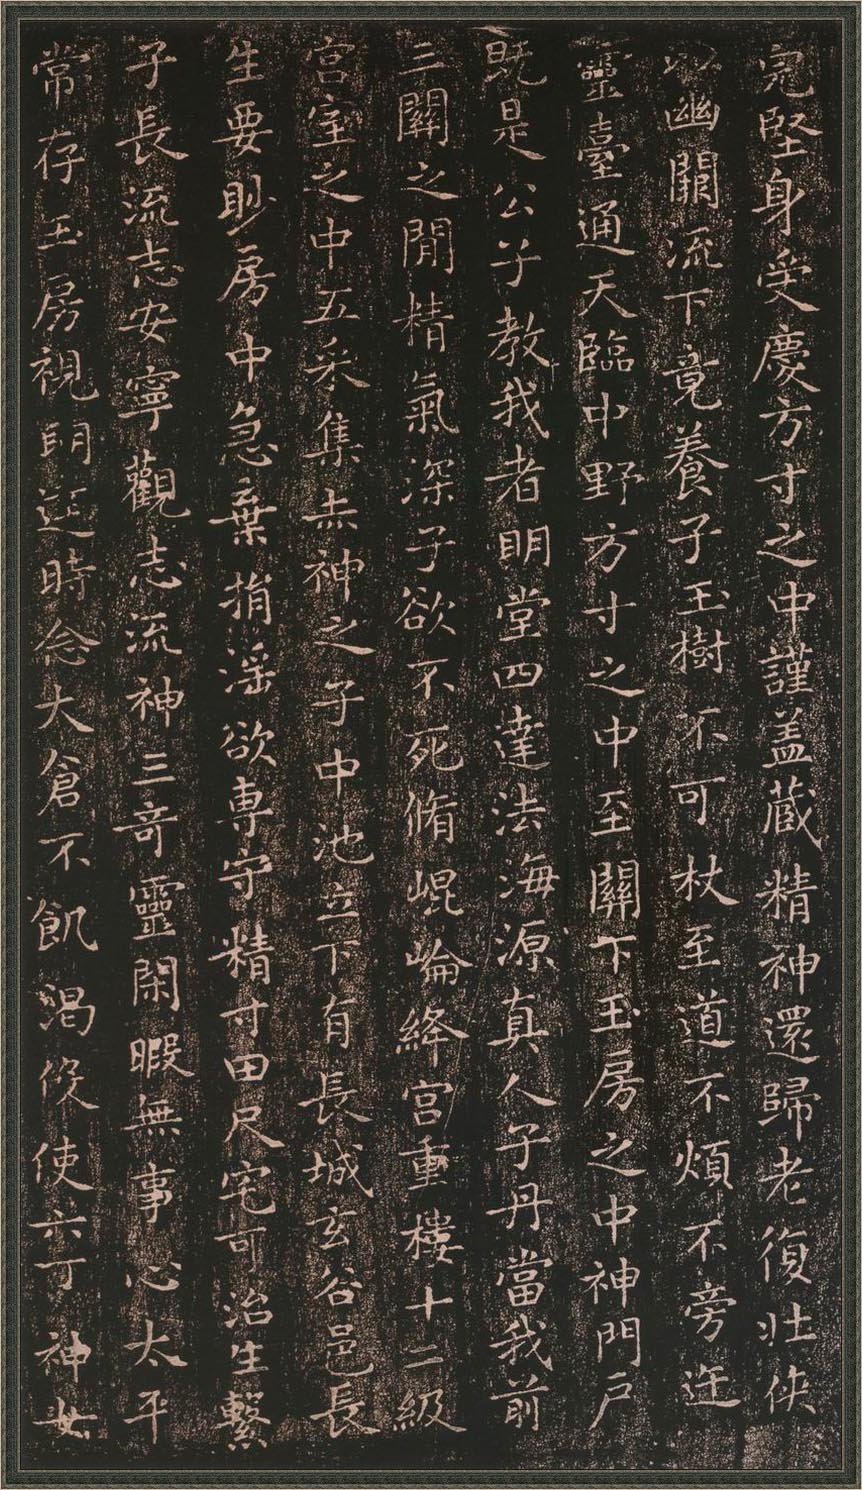 完堅身受慶方寸之中謹盖蔵精神還歸老復壮侠
以幽闕流下竟養子玉樹不可杖至道不煩不旁迕
靈臺通天臨中野方寸之中至關下玉房之中神門戶
既是公子教我者明堂四達法海源真人子丹當我前
三關之閒精氣深子欲不死脩崐崘絳宫重樓十二級
宫室之中五采集赤神之子中池立下有長城玄谷邑長
生要眇房中急棄捐淫欲専守精寸田尺宅可治生繋
子長流志安寧觀志流神三奇靈閑暇無事心太平
常存玉房視明逹時念大倉不飢渇役使六丁神女